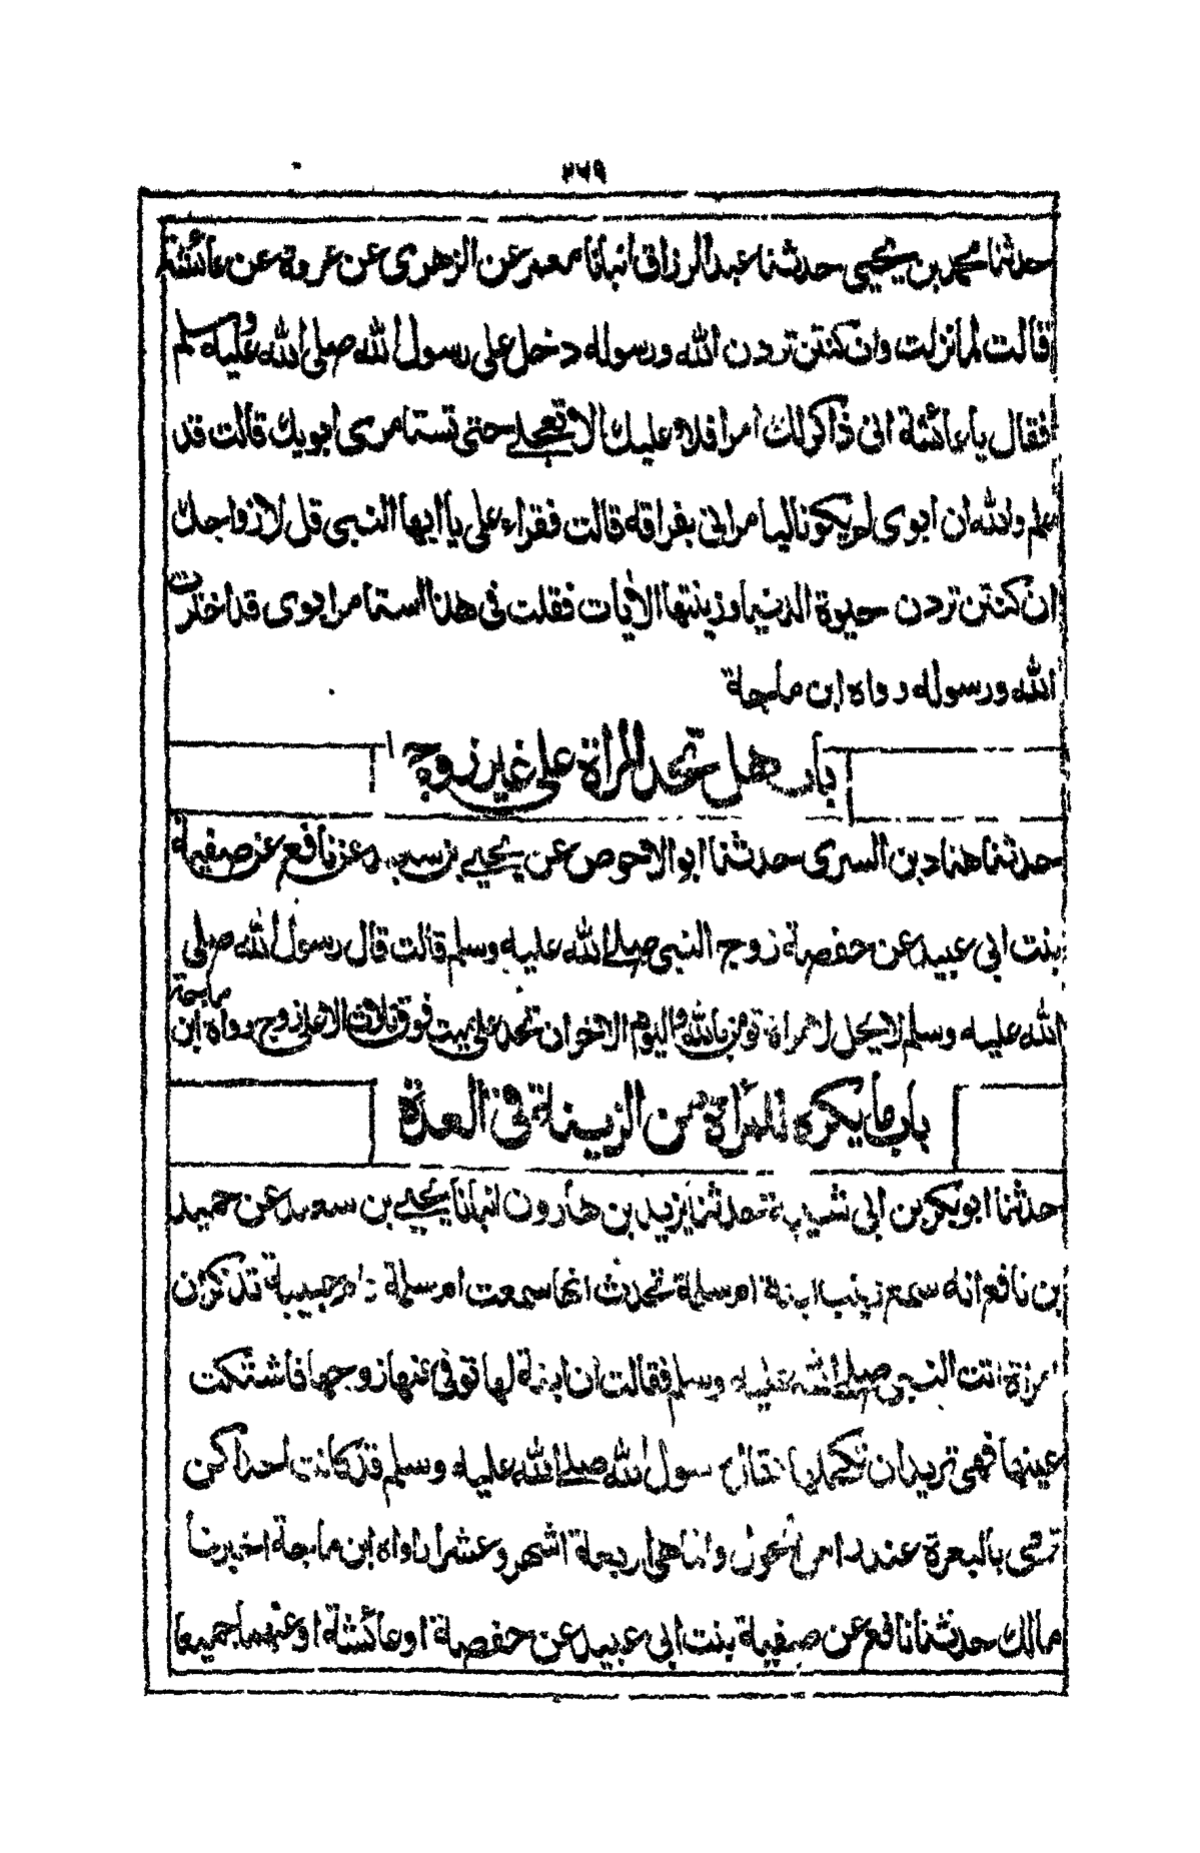 ٢٦٩
حدثنا محمد بن يحيى حدثنا عبد الرزاق انبانا معمر عن الزهرى عن عروة عن عائشة
قالت لما نزلت وان كنتن تردن الله ورسوله دخل على رسول الله صلى الله عليه وسلم
فقال يا عائشة انى ذاكر لك امرا فلا عليك الا تعجلى حتى تستامرى ابويك قالت قد
علم والله ان ابوى لم يكونا ليامرانى بفراقه قالت فقراء على يا ايها النبى قل لازواجك
ان كنتن تردن حيوة الدنيا وزينتها الايات فقلت فى هذا استامر ابوى قد اخترت
الله ورسوله رواه ابن ماجة
باب هل تحد المراة على غير زوجها
حدثنا هناد بن السرى حدثنا ابو الاحوص عن يحيى بن سعيد عن نافع عن صفية
بنت ابى عبيد عن حفصة زوج النبى صلى الله عليه وسلم قالت قال رسول الله صلى
الله عليه وسلم لا يحل لامراة تؤمن بالله واليوم الاخر ان تحد على ميت فوق ثلاث الا على زوج رواه ابن ماجة
باب ما يكره للمرأة من الزينة فى العدة
حدثنا ابو بكر بن ابى شيبة حدثنا يزيد بن هارون انبانا يحيى بن سعيد عن حميد
بن نافع انه سمع زينب ابنة ام سلمة تحدث انها سمعت ام سلمة وام حبيبة تذكران
امرأة اتت النبى صلى الله عليه وسلم فقالت ان ابنة لها توفى عنها زوجها فاشتكت
عينها فهى تريد ان تكحلها فقال رسول الله صلى الله عليه وسلم قد كانت احداكن
ترمى بالبعرة عند راس الحول وانما هى اربعة اشهر وعشرا رواه ابن ماجة اخبرنا
مالك حدثنا نافع عن صفية بنت ابى عبيد عن حفصة او عائشة او عنهما جميعا